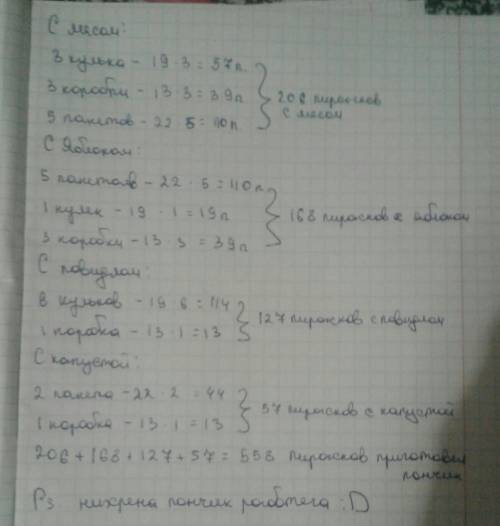 С мясом:
3 кулька – 19 · 3 = 57 п.
3 коробки – 13 · 3 = 39 п
5 пакетов – 22 · 5 = 110 п.
206 пирожков
с мясом
С Яблоком:
5 пакетов – 22 · 5 = 110 п
1 кулек – 19 · 1 = 19 п
3 коробки – 13 · 3 = 39 п
168 пирожков с яблоком
С повидлом:
6 кульков – 19 · 6 = 114
1 коробка – 13 · 1 = 13
127 пирожков с повидлом
С капустой:
2 пакета – 22 · 2 = 44
1 коробка – 13 · 1 = 13
57 пирожков с капустой
206 + 168 + 127 + 57 = 558 пирожков приготовил
пончик
Ps нихрена пончик работяга :D